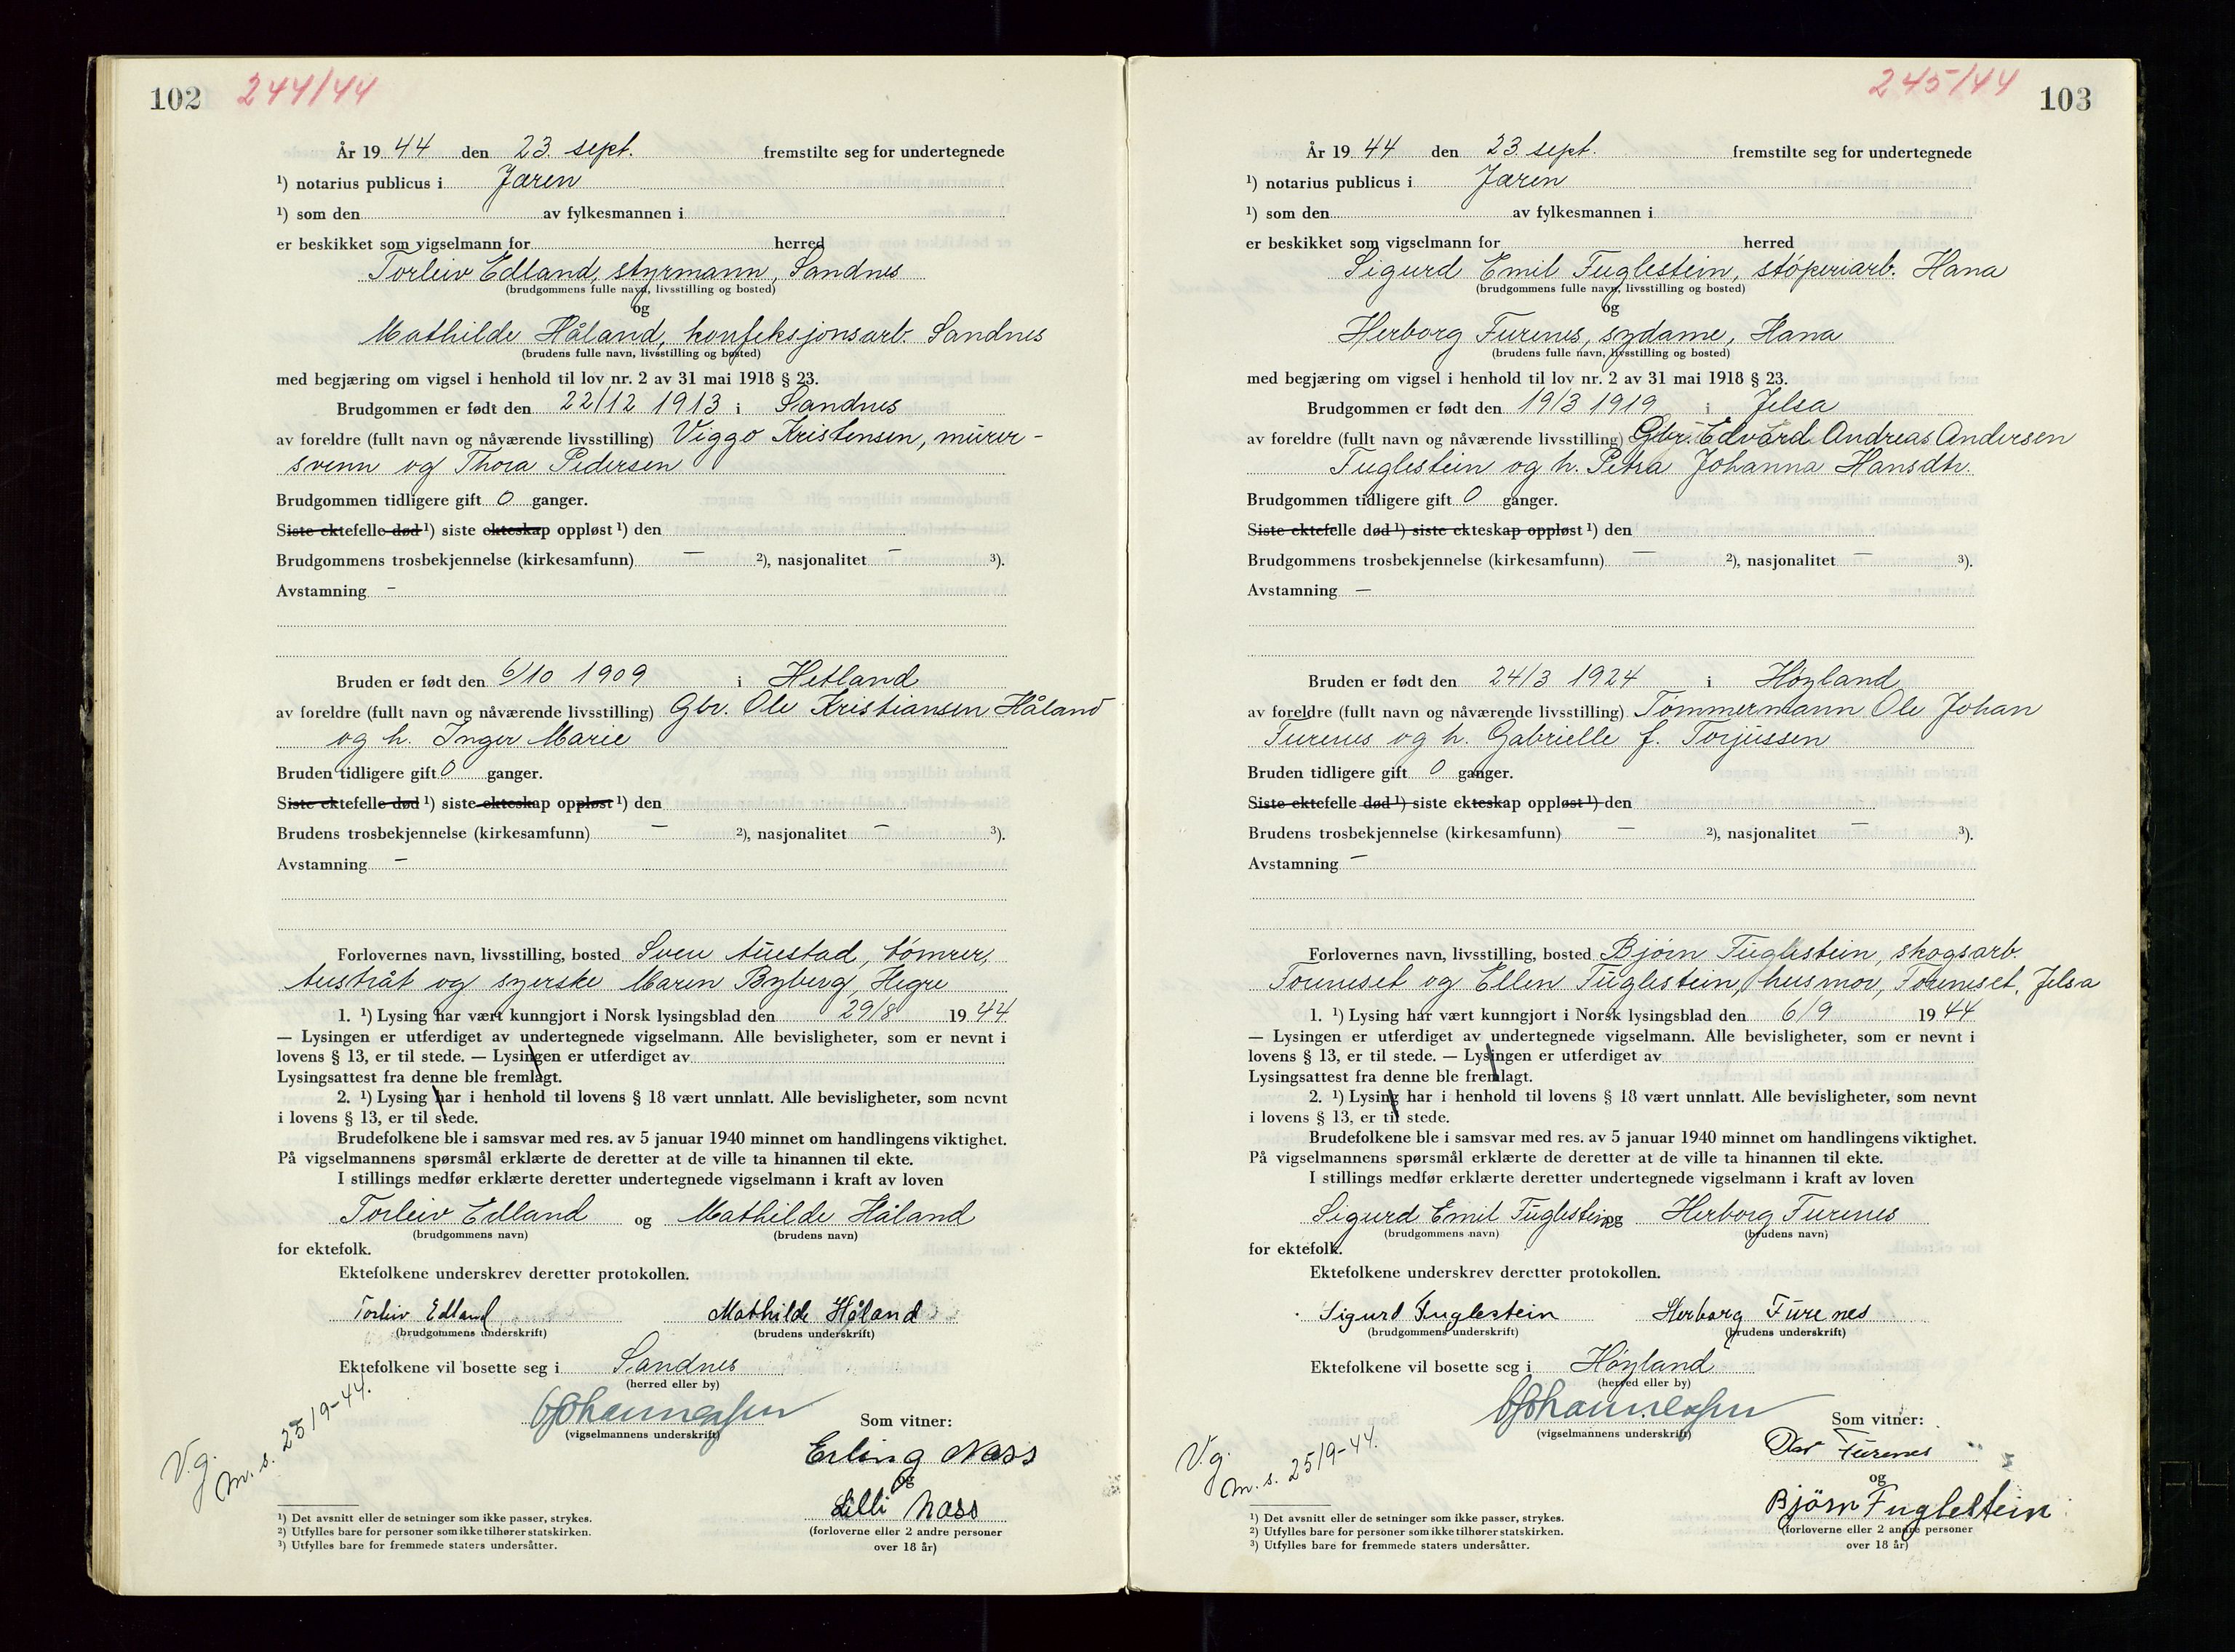 102 244/44
År 19 44 den 23. sept. fremstilte seg for undertegnede
¹) notarius publicus i Jæren
¹) som den av fylkesmannen i
er beskikket som vigselmann for herred
Torleiv Edland, styrmann, Sandnes
(brudgommens fulle navn, livsstilling og bosted)
og
Mathilde Håland, konfeksjonsarb. Sandnes
(brudens fulle navn, livsstilling og bosted)
med begjæring om vigsel i henhold til lov nr. 2 av 31 mai 1918 § 23.
Brudgommen er født den 22/12 1913 i Sandnes
av foreldre (fullt navn og nåværende livsstilling) Viggo Kristensen, murer-
svenn og Thora Pedersen
Brudgommen tidligere gift 0 ganger.
Siste ektefelle død ¹) siste ekteskap oppløst ¹) den
Brudgommens trosbekjennelse (kirkesamfunn) — ²), nasjonalitet — ³).
Avstamning –
Bruden er født den 6/10 1909 i Hetland
av foreldre (fullt navn og nåværende livsstilling) Gbr. Ole Kristiansen Håland
og h. Inger Marie
Bruden tidligere gift 0 ganger.
Siste ektefelle død ¹) siste ekteskap oppløst ¹) den
Brudens trosbekjennelse (kirkesamfunn) — ²), nasjonalitet — ³).
Avstamning –
Forlovernes navn, livsstilling, bosted Sven Auestad, tømrer,
Austråt og syerske Maren Byberg, Hegre
1. ¹) Lysing har vært kunngjort i Norsk lysingsblad den 29/8 19 44
— Lysingen er utferdiget av undertegnede vigselmann. Alle bevisligheter, som er nevnt i
lovens § 13, er til stede. — Lysingen er utferdiget av
Lysingsattest fra denne ble fremlagt.
2. ¹) Lysing har i henhold til lovens § 18 vært unnlatt. Alle bevisligheter, som nevnt
i lovens § 13, er til stede.
Brudefolkene ble i samsvar med res. av 5 januar 1940 minnet om handlingens viktighet.
På vigselmannens spørsmål erklærte de deretter at de ville ta hinannen til ekte.
I stillings medfør erklærte deretter undertegnede vigselmann i kraft av loven
Torleiv Edland og Mathilde Håland
(brudgommens navn) (brudens navn)
for ektefolk.
Ektefolkene underskrev deretter protokollen.
Torleiv Edland Mathilde Håland
(brudgommens underskrift) (brudens underskrift)
Ektefolkene vil bosette seg i Sandnes
(herred eller by)
Johannessen
(vigselmannens underskrift)
Som vitner:
Erling Nass
og
Lilli Nass
(forloverne eller 2 andre personer
over 18 år)
V.g.
m. s. 25/9-44.
¹) Det avsnitt eller de setninger som ikke passer, strykes.
²) Utfylles bare for personer som ikke tilhører statskirken.
³) Utfylles bare for fremmede staters undersåtter.
245/44 103
År 19 44 den 23. sept. fremstilte seg for undertegnede
¹) notarius publicus i Jæren
¹) som den av fylkesmannen i
er beskikket som vigselmann for herred
Sigurd Emil Fuglestein, støperiarb. Hana
(brudgommens fulle navn, livsstilling og bosted)
og
Herborg Furenes, sydame, Hana
(brudens fulle navn, livsstilling og bosted)
med begjæring om vigsel i henhold til lov nr. 2 av 31 mai 1918 § 23.
Brudgommen er født den 19/3 1919 i Jelsa
av foreldre (fullt navn og nåværende livsstilling) Gbr. Edvard Andreas Andersen
Fuglestein og h. Petra Johanna Hansdtr.
Brudgommen tidligere gift 0 ganger.
Siste ektefelle død ¹) siste ekteskap oppløst ¹) den
Brudgommens trosbekjennelse (kirkesamfunn) — ²), nasjonalitet — ³).
Avstamning —
Bruden er født den 24/3 1924 i Høyland
av foreldre (fullt navn og nåværende livsstilling) Tømmermann Ole Johan
Furenes og h. Gabrielle f. Torjussen
Bruden tidligere gift 0 ganger.
Siste ektefelle død ¹) siste ekteskap oppløst ¹) den
Brudens trosbekjennelse (kirkesamfunn) — ²), nasjonalitet — ³).
Avstamning –
Forlovernes navn, livsstilling, bosted Bjørn Fuglestein, skogsarb.
og Ellen Fuglestein, husmor, Jelsa
1. ¹) Lysing har vært kunngjort i Norsk lysingsblad den 6/9 19 44
— Lysingen er utferdiget av undertegnede vigselmann. Alle bevisligheter, som er nevnt i
lovens § 13, er til stede. — Lysingen er utferdiget av
Lysingsattest fra denne ble fremlagt.
2. ¹) Lysing har i henhold til lovens § 18 vært unnlatt. Alle bevisligheter, som nevnt
i lovens § 13, er til stede.
Brudefolkene ble i samsvar med res. av 5 januar 1940 minnet om handlingens viktighet.
På vigselmannens spørsmål erklærte de deretter at de ville ta hinannen til ekte.
I stillings medfør erklærte deretter undertegnede vigselmann i kraft av loven
Sigurd Emil Fuglestein og Herborg Furenes
(brudgommens navn) (brudens navn)
for ektefolk.
Ektefolkene underskrev deretter protokollen.
Sigurd Fuglestein Herborg Furenes
(brudgommens underskrift) (brudens underskrift)
Ektefolkene vil bosette seg i Høyland
(herred eller by)
Johannessen
(vigselmannens underskrift)
Som vitner:
Furenes
og
Bjørn Fuglestein
(forloverne eller 2 andre personer
over 18 år)
V.g.
m. s. 25/9-44.
¹) Det avsnitt eller de setninger som ikke passer, strykes.
²) Utfylles bare for personer som ikke tilhører statskirken.
³) Utfylles bare for fremmede staters undersåtter.